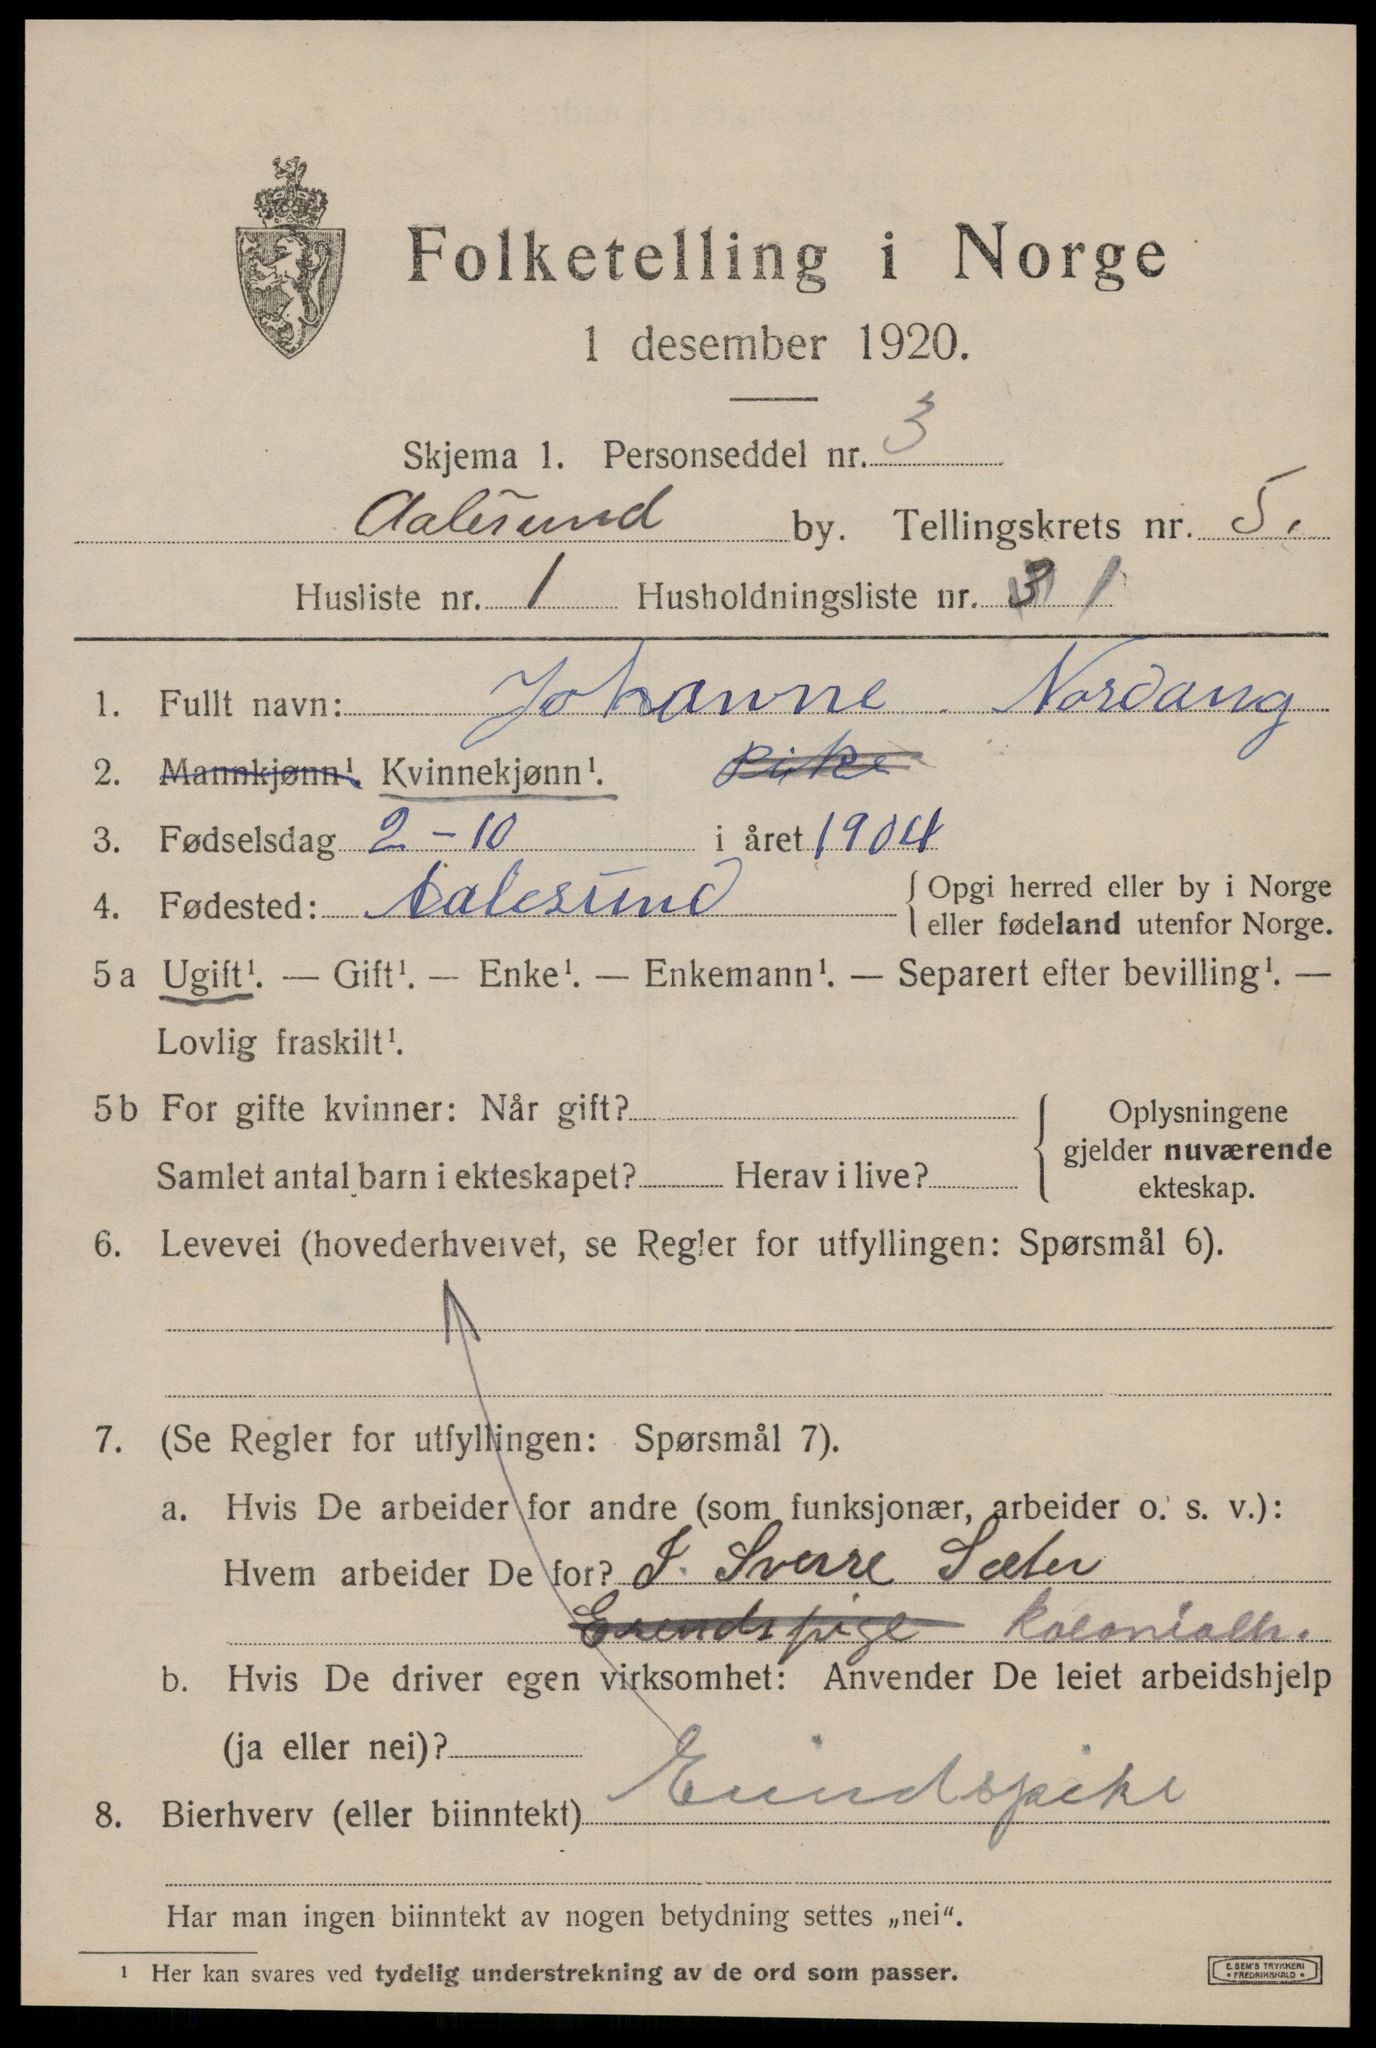 Folketelling i Norge
1 desember 1920.
Skjema 1. Personseddel nr. 3
Aalesund by. Tellingskrets nr. 5.
Husliste nr. 1 Husholdningsliste nr. 3 1
1. Fullt navn: Johanne Nordang
2. Mannkjønn¹. Kvinnekjønn¹. Pike
3. Fødselsdag 2-10 i året 1904
4. Fødested: Aalesund { Opgi herred eller by i Norge
eller fødeland utenfor Norge.
5a Ugift¹. — Gift¹. — Enke¹. — Enkemann¹. — Separert efter bevilling¹. —
Lovlig fraskilt¹.
5b For gifte kvinner: Når gift?
Samlet antal barn i ekteskapet? Herav i live?
Oplysningene
gjelder nuværende
ekteskap.
6. Levevei (hovederhvervet, se Regler for utfyllingen: Spørsmål 6).
7. (Se Regler for utfyllingen: Spørsmål 7).
a. Hvis De arbeider for andre (som funksjonær, arbeider o. s. v.):
Hvem arbeider De for? J. Sverre Sæter
Erendspige kolonialh.
b. Hvis De driver egen virksomhet: Anvender De leiet arbeidshjelp
(ja eller nei)?
Erindspike
8. Bierhverv (eller biinntekt)
Har man ingen biinntekt av nogen betydning settes „nei“.
¹ Her kan svares ved tydelig understrekning av de ord som passer.
E. SEM'S TRYKKERI
• FREDRIKSHALD •